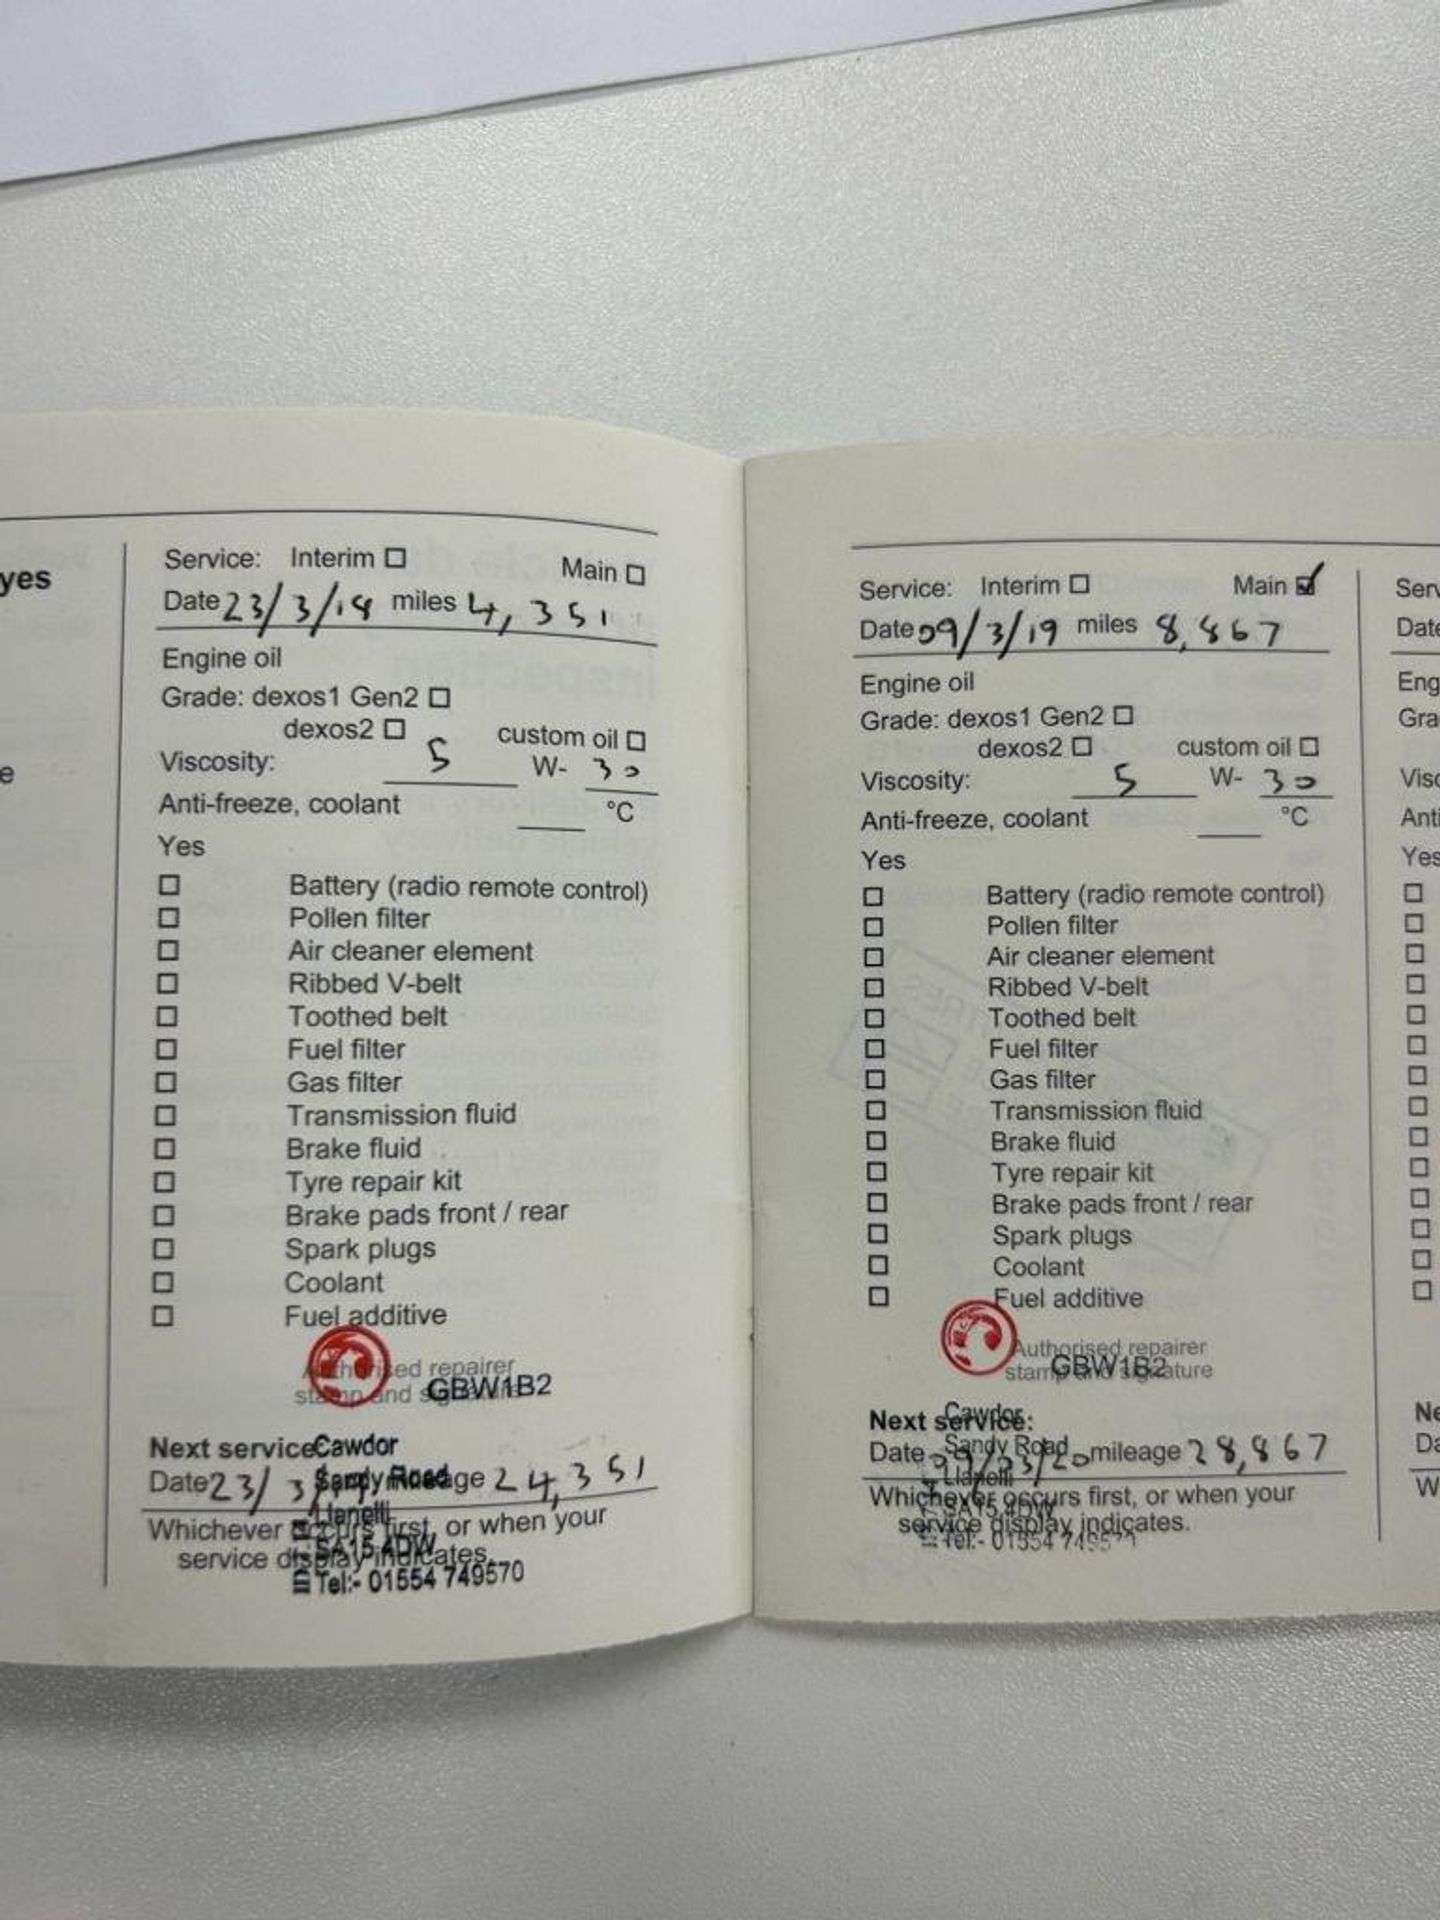 yes
e
Service: Interim ☐ Main ☐
Date 23/3/18 miles 4,351
Engine oil
Grade: dexos1 Gen2 ☐
dexos2 ☐ custom oil ☐
Viscosity: 5 W- 30
Anti-freeze, coolant ____ °C
Yes
☐ Battery (radio remote control)
☐ Pollen filter
☐ Air cleaner element
☐ Ribbed V-belt
☐ Toothed belt
☐ Fuel filter
☐ Gas filter
☐ Transmission fluid
☐ Brake fluid
☐ Tyre repair kit
☐ Brake pads front / rear
☐ Spark plugs
☐ Coolant
☐ Fuel additive
Authorised repairer
stamp and signature
GBW1B2
Next service:
Date 23/3/19 mileage 24,351
Whichever occurs first, or when your
service display indicates.
Cawdor
Sandy Road
Llanelli
SA15 4DW
Tel:- 01554 749570
Service: Interim ☐ Main ☑
Date 09/3/19 miles 8,867
Engine oil
Grade: dexos1 Gen2 ☐
dexos2 ☐ custom oil ☐
Viscosity: 5 W- 30
Anti-freeze, coolant ____ °C
Yes
☐ Battery (radio remote control)
☐ Pollen filter
☐ Air cleaner element
☐ Ribbed V-belt
☐ Toothed belt
☐ Fuel filter
☐ Gas filter
☐ Transmission fluid
☐ Brake fluid
☐ Tyre repair kit
☐ Brake pads front / rear
☐ Spark plugs
☐ Coolant
☐ Fuel additive
Authorised repairer
stamp and signature
GBW1B2
Next service:
Date 09/03/20 mileage 28,867
Whichever occurs first, or when your
service display indicates.
Cawdor
Sandy Road
Llanelli
SA15 4DW
Tel:- 01554 749570
Serv
Date
Eng
Gra
Visc
Anti
Yes
Ne
Da
W